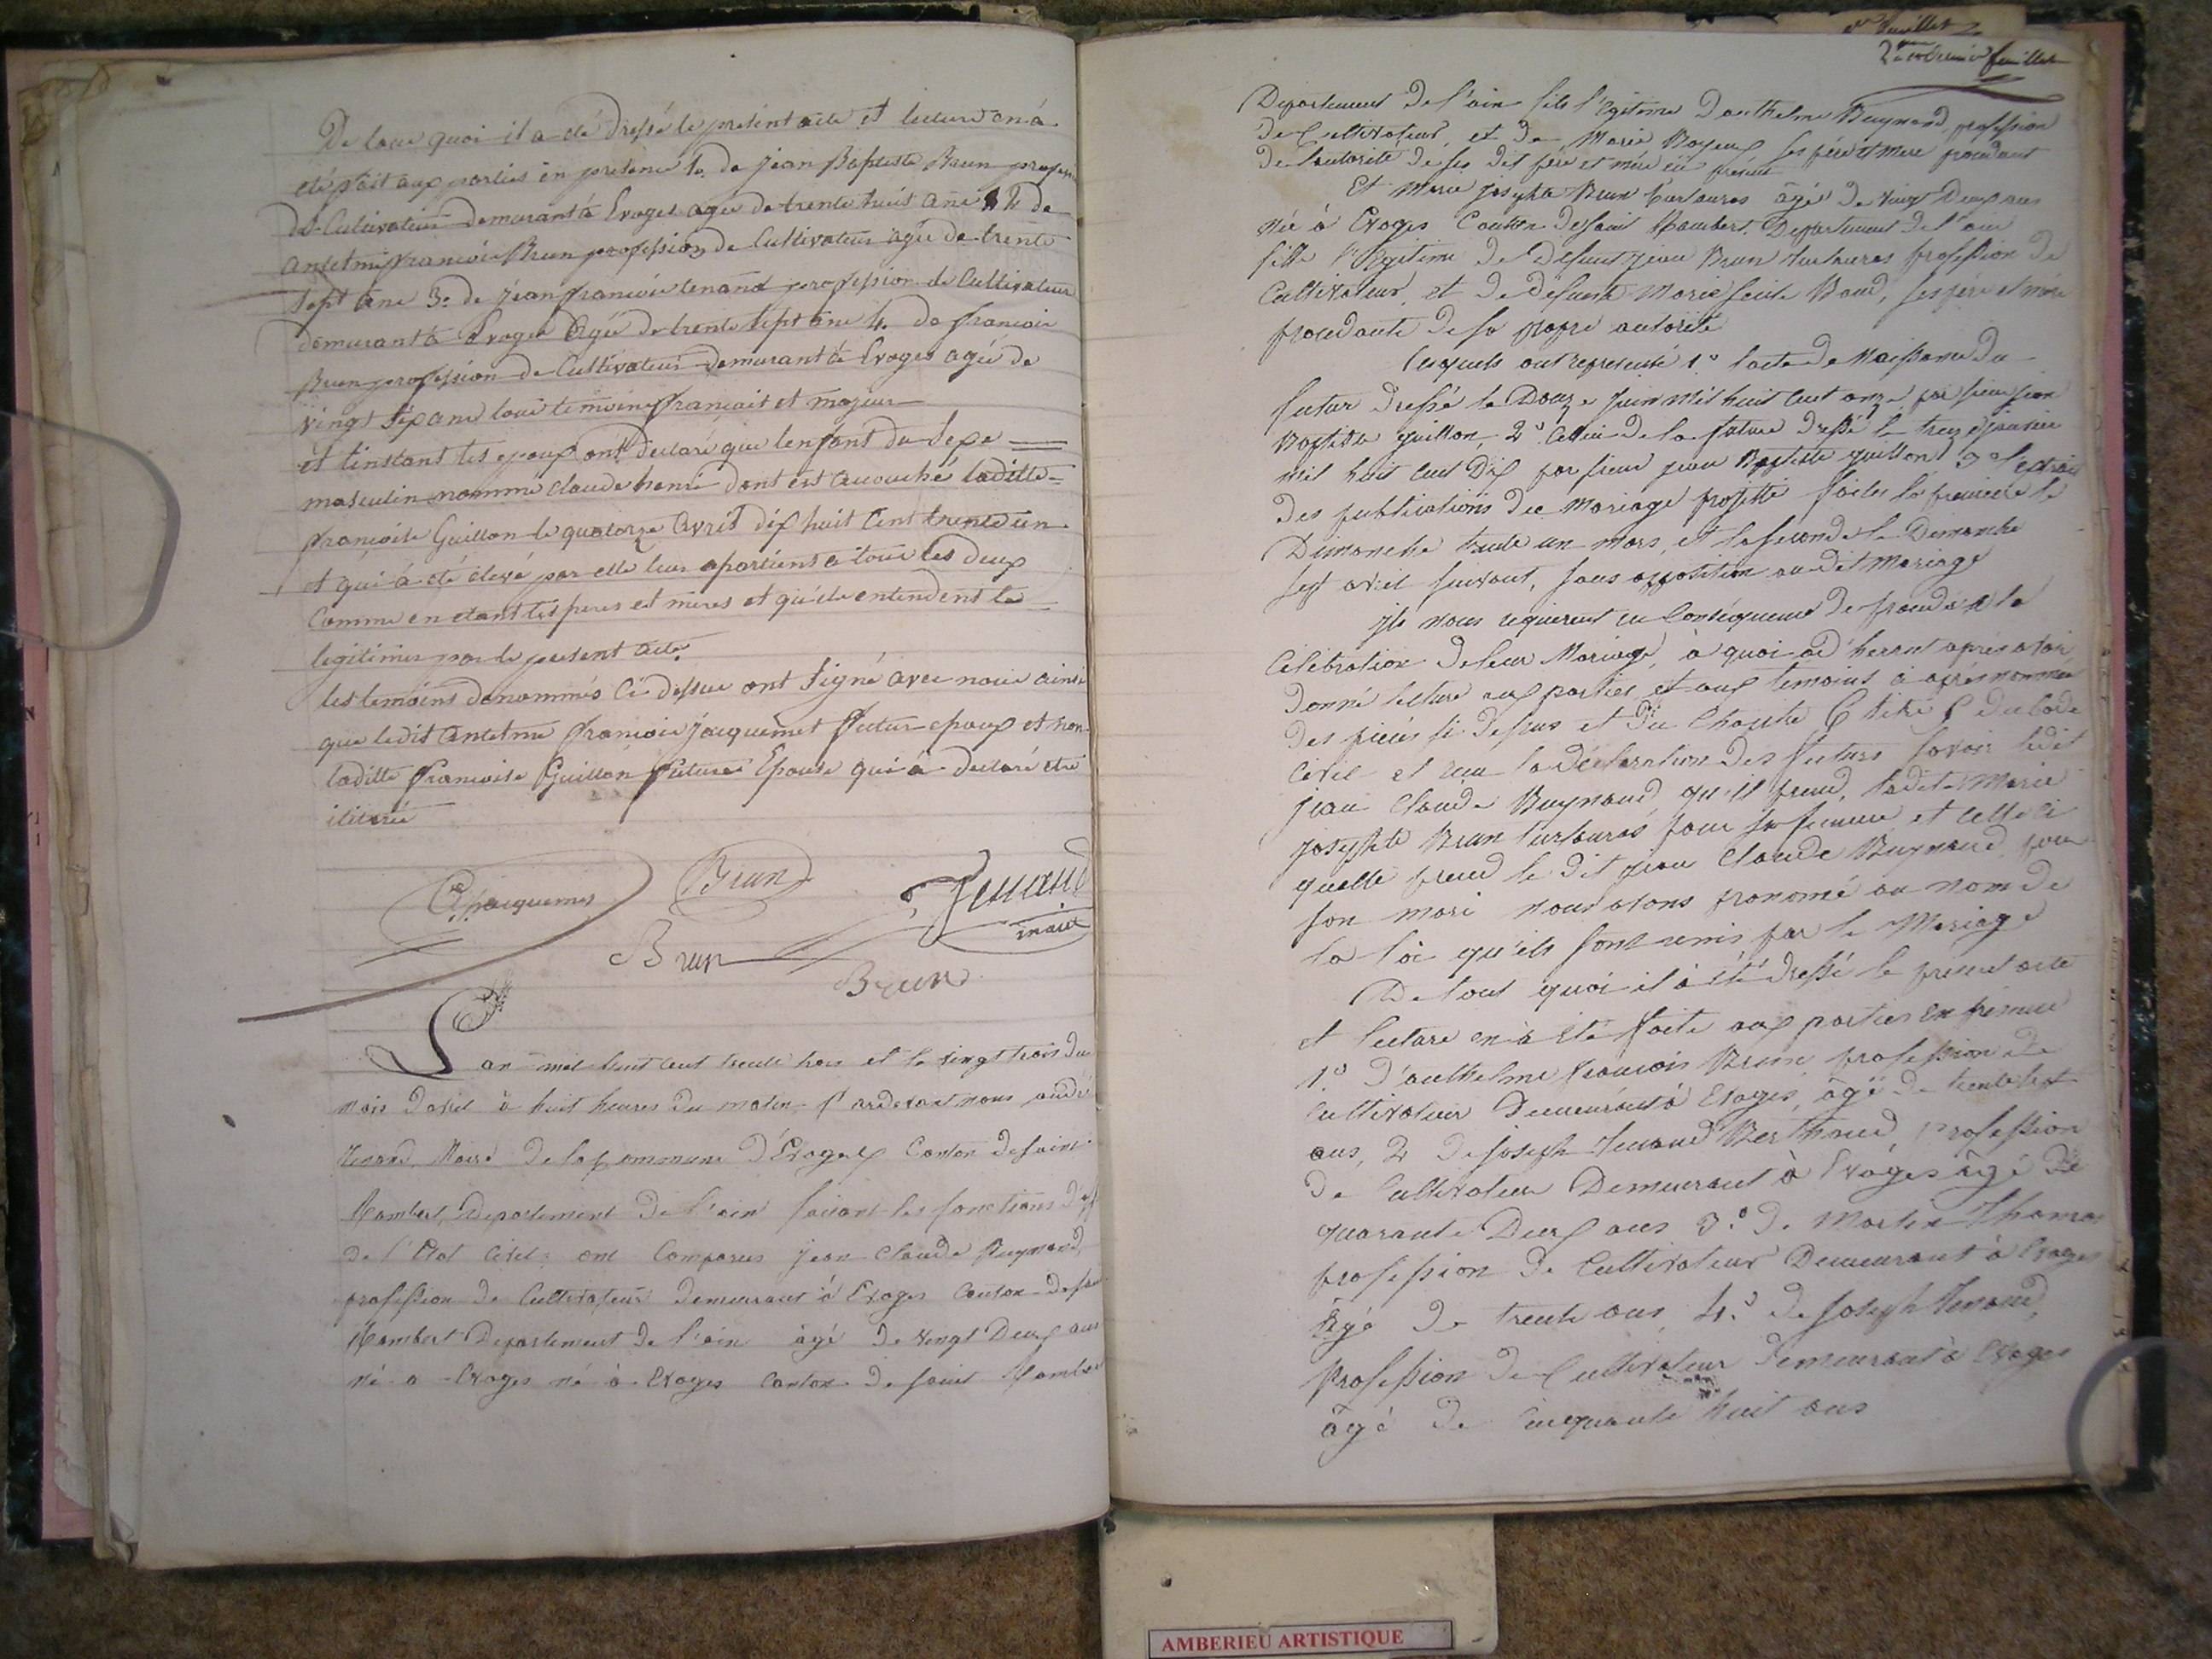 De tout quoi il a été dressé le présent acte et lecture en á
été fait aux parties en présence 1o. de jean Baptiste Brun profession
de Cultivateur demurant á Evoges agée de trente huit ane 2 de
antelme françois Brun profession de Cultivateur agée de trente
sept ane 3o. de jean françois tenand profession de Cultivateur
demurant á Evoges agée de trente sept ane 4. de françois
Brun profession de Cultivateur demurant á Evoges agée de
vingt six ane touts temoins français et majeur
et l'instant les epoux ont declaré que lenfant du sexe
masculin nommé claude henri dont est accouché laditte
françoise Guillon le quatorze avril dix huit cent trente un
et qui á été élevé par elle leur apartient a tous les deux
Comme en etant les peres et meres et qu'ils entendent le
legitimer par le present acte.
les temoins denommés ci dessus ont signé avec nous ainsi
que ledit antelme françois jacquemet futur epoux et non
laditte françoise Guillon future Epouse qui á declaré etre
iliterée
jacquemet Brun Tenand
maire
Brun
Brun
L'an mil huit cent trente trois et le vingt trois du
mois d'avril à huit heures du matin, Pardevant nous andré
Tenand, Maire de la commune d'Evoges Canton de saint
Rambert, Departement de l'ain faisant les fonctions d'off
de l'Etat Civil, ont Comparus jean Claude Buynand,
profession de Cultivateur demeurant à Evoges Canton de saint
Rambert Departement de l'ain âgé de vingt Deux ans
né a Evoges né à Evoges Canton de saint Rambert
2e et dernier feuillet
Departement de l'ain fils l'Egitime Danthelme Buynand, profession
de Cultivateur, et de Marie ses père et mere procedant
de l'autorité de ses dit père et mère ici present
Et Marie josephte Brun turlauras âgé de vingt Deux ans
née à Evoges Canton de saint Rambert. Departement de l'ain
fille l'Egitime de Defunt jean Brun turlauras profession de
Cultivateur, et de Defunte Marie ses père et mère
procedante de sa propre autorité
Lesquels ont representé 1o. l'acte de Naissance du
futur dressé le Douze juin mil huit cent onze par sieur jean
Baptiste guillon, 2o. Celui de la future dressé le treize janvier
mil huit cent Dix par sieur jean Baptiste guillon 3o. l'extrait
des publications de Mariage projetté faites la premiere le
Dimanche trente un mars, et la seconde le Dimanche
sept avril suivant, sans opposition audit Mariage
ils nous requierent en Consequence de proceder a la
Célébration de leur Mariage, à quoi ad'herrent après avoir
donné lecture aux parties et aux temoins ci après nommés
des pièces si dessus et du Chapitre 6 titre 5 du Code
Civil et reçu la Déclaration des futurs savoir ledit
jean Claude Buynand, qu'il prend, ladite Marie
josephte Brun turlauras pour sa femme et celle ci
quelle prend le dit jean Claude Buynand, pour
son mari nous avons prononcé au nom de
la loi qu'ils sont unis par le Mariage
De tout quoi il à été dressé le present acte
et lecture en à été faite aux parties en présence
1.o D'anthelme françois Brun profession de
Cultivateur Demeurant à Evoges, âgé de trente sept
ans, 2 de joseph Tenand Berthaud, Profession
de Cultivateur Demeurant à Evoges âgé de
quarante Deux ans 3.o de Martin Thomas
profession de Cultivateur Demeurant à Evoges
âgé de trente ans, 4.o de joseph Tenand,
Profession de Cultivateur Demeurant à Evoges
âgé de Cinquante huit ans
AMBERIEU ARTISTIQUE